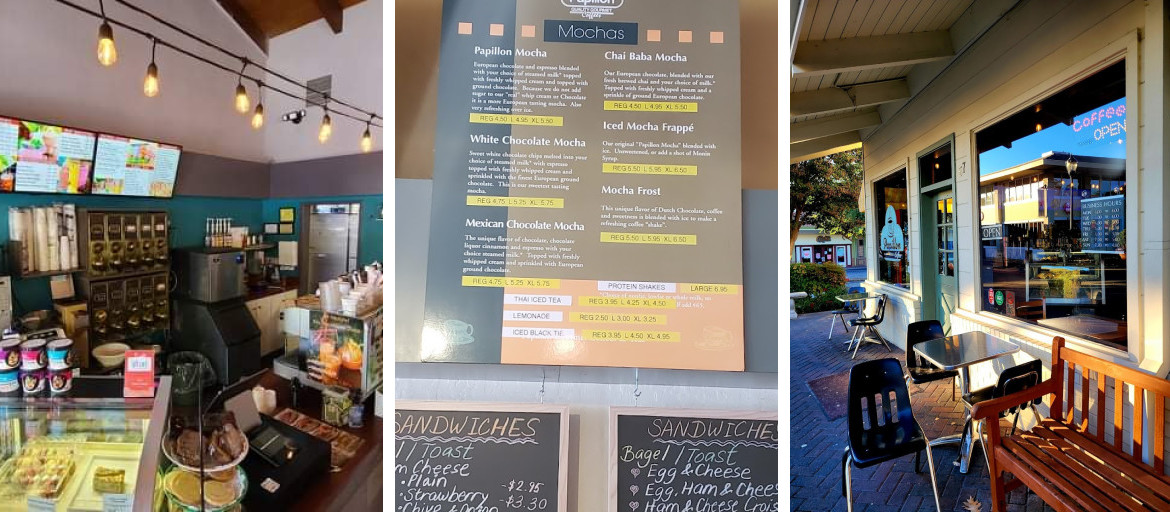 Papillon
QUALITY GOURMET
Coffees
Mochas
Papillon Mocha
European chocolate and espresso blended
with your choice of steamed milk* topped
with freshly whipped cream and topped with
ground chocolate. Because we do not add
sugar to our "real" whip cream or Chocolate
it is a more European tasting mocha. Also
very refreshing over ice.
REG 4.50 L 4.95 XL 5.50
White Chocolate Mocha
Sweet white chocolate chips melted into your
choice of steamed milk* with espresso
topped with freshly whipped cream and
sprinkled with the finest European ground
chocolate. This is our sweetest tasting
mocha.
REG 4.75 L 5.25 XL 5.75
Mexican Chocolate Mocha
The unique flavor of chocolate, chocolate
liquor cinnamon and espresso with your
choice steamed milk* Topped with freshly
whipped cream and sprinkled with European
ground chocolate.
REG 4.75 L 5.25 XL 5.75
Chai Baba Mocha
Our European chocolate, blended with our
fresh brewed chai and your choice of milk.*
Topped with freshly whipped cream and a
sprinkle of ground European chocolate.
REG 4.50 L 4.95 XL 5.50
Iced Mocha Frappé
Our original "Papillon Mocha" blended with
ice. Unsweetened, or add a shot of Monin
Syrup.
REG 5.50 L 5.95 XL 6.50
Mocha Frost
This unique flavor of Dutch Chocolate, coffee
and sweetness is blended with ice to make a
refreshing coffee "shake".
REG 5.50 L 5.95 XL 6.50
PROTEIN SHAKES LARGE 6.95
THAI ICED TEA REG 3.95 L 4.25 XL 4.50
LEMONADE REG 2.50 L 3.00 XL 3.25
ICED BLACK TIE REG 3.95 L 4.50 XL 4.95
SANDWICHES
l / Toast
m Cheese
• Plain -$2.95
• Strawberry -$3.30
• Chive & Onion
SANDWICHES
Bagel / Toast
Egg & Cheese
Egg, Ham & Chees
Ham & Cheese Crois
Coffee
OPEN
BUSINESS HOURS
OPEN